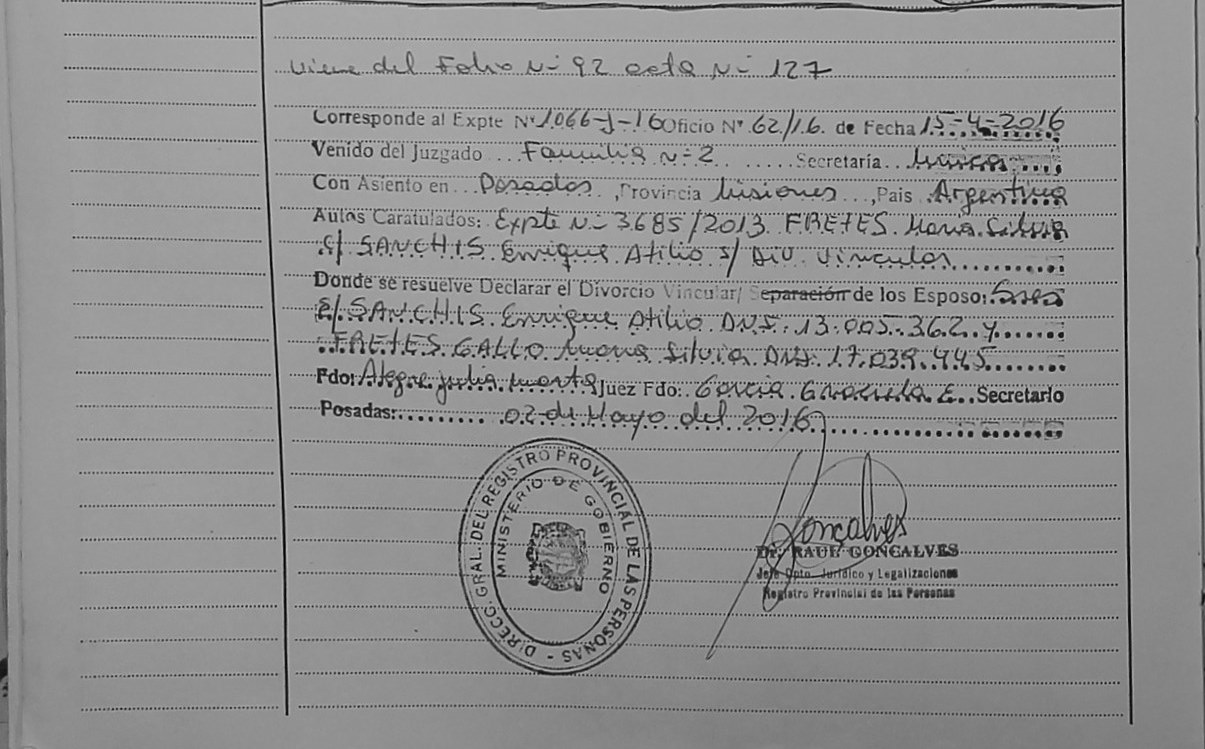 Viene del Folio Nº 92 acta Nº 127
Corresponde al Expte Nº 1066-J-16 Oficio Nº 62/16. de Fecha 15-4-2016
Venido del Juzgado Familia Nº 2 Secretaría única
Con Asiento en Posadas, Provincia Misiones, Pais Argentina
Autos Caratulados: Expte Nº 3685/2013 FRETES Maria Silvia
c/ SANCHIS Enrique Atilio s/ Div. Vincular
Donde se resuelve Declarar el Divorcio Vincular/ Separación de los Esposo:
SANCHIS Enrique Atilio DNI. 13.005.362 y
FRETES GALLO Maria Silvia DNI. 17.039.445
Fdo: Alegre Julia Marta Juez Fdo: Garcia Graciela E. Secretario
Posadas: 02 de Mayo del 2016
DIRECC. GRAL. DEL REGISTRO PROVINCIAL DE LAS PERSONAS -
MINISTERIO DE GOBIERNO
Gonçalves
Dr. RAUL GONCALVES
Jefe Dpto. Jurídico y Legalizaciones
Registro Provincial de las Personas